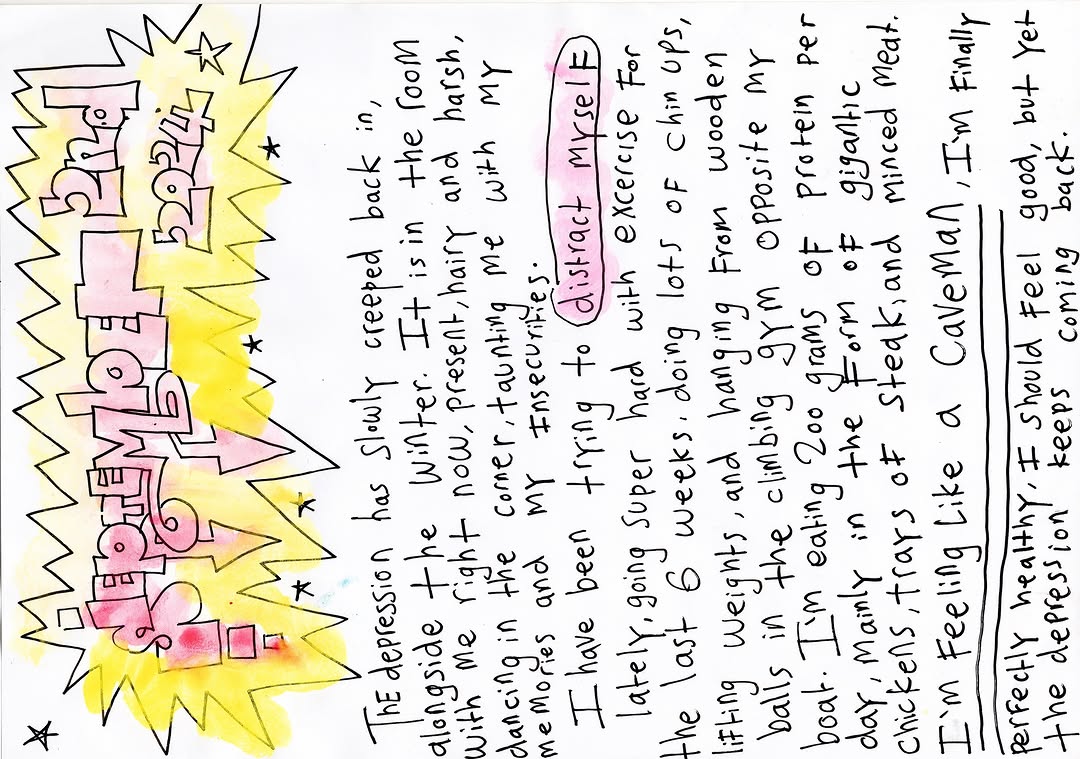 SEPTEMBER 2nd
2024
THE depression has slowly creeped back in,
alongside the winter. It is in the room
with me right now, present, hairy and harsh,
dancing in the corner, taunting me with my
memories and my insecurities.
I have been trying to distract myself
lately, going super hard with excercise for
the last 6 weeks, doing lots of chin ups,
lifting weights, and hanging from wooden
balls in the climbing gym opposite my
boat. I'm eating 200 grams of protein per
day, mainly in the form of gigantic
chickens, trays of steak, and minced meat.
I'm feeling like a caveman, I'm finally
perfectly healthy, I should feel good, but yet
the depression keeps coming back.